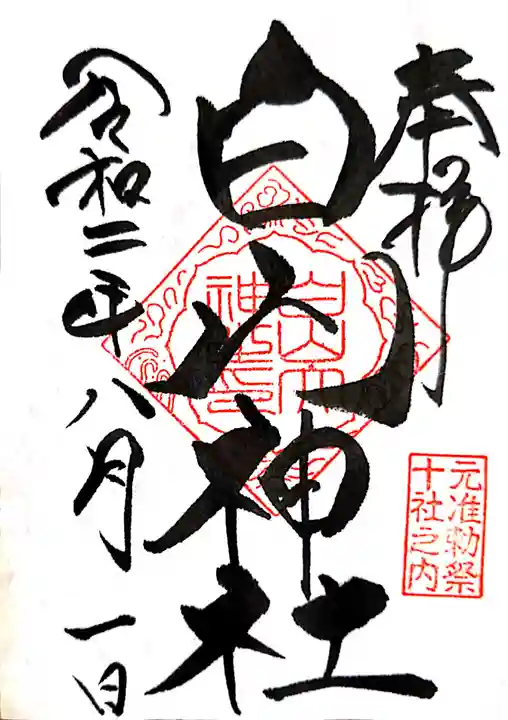 奉拝
元准勅祭
十社之内
白山神社
令和二年八月一日